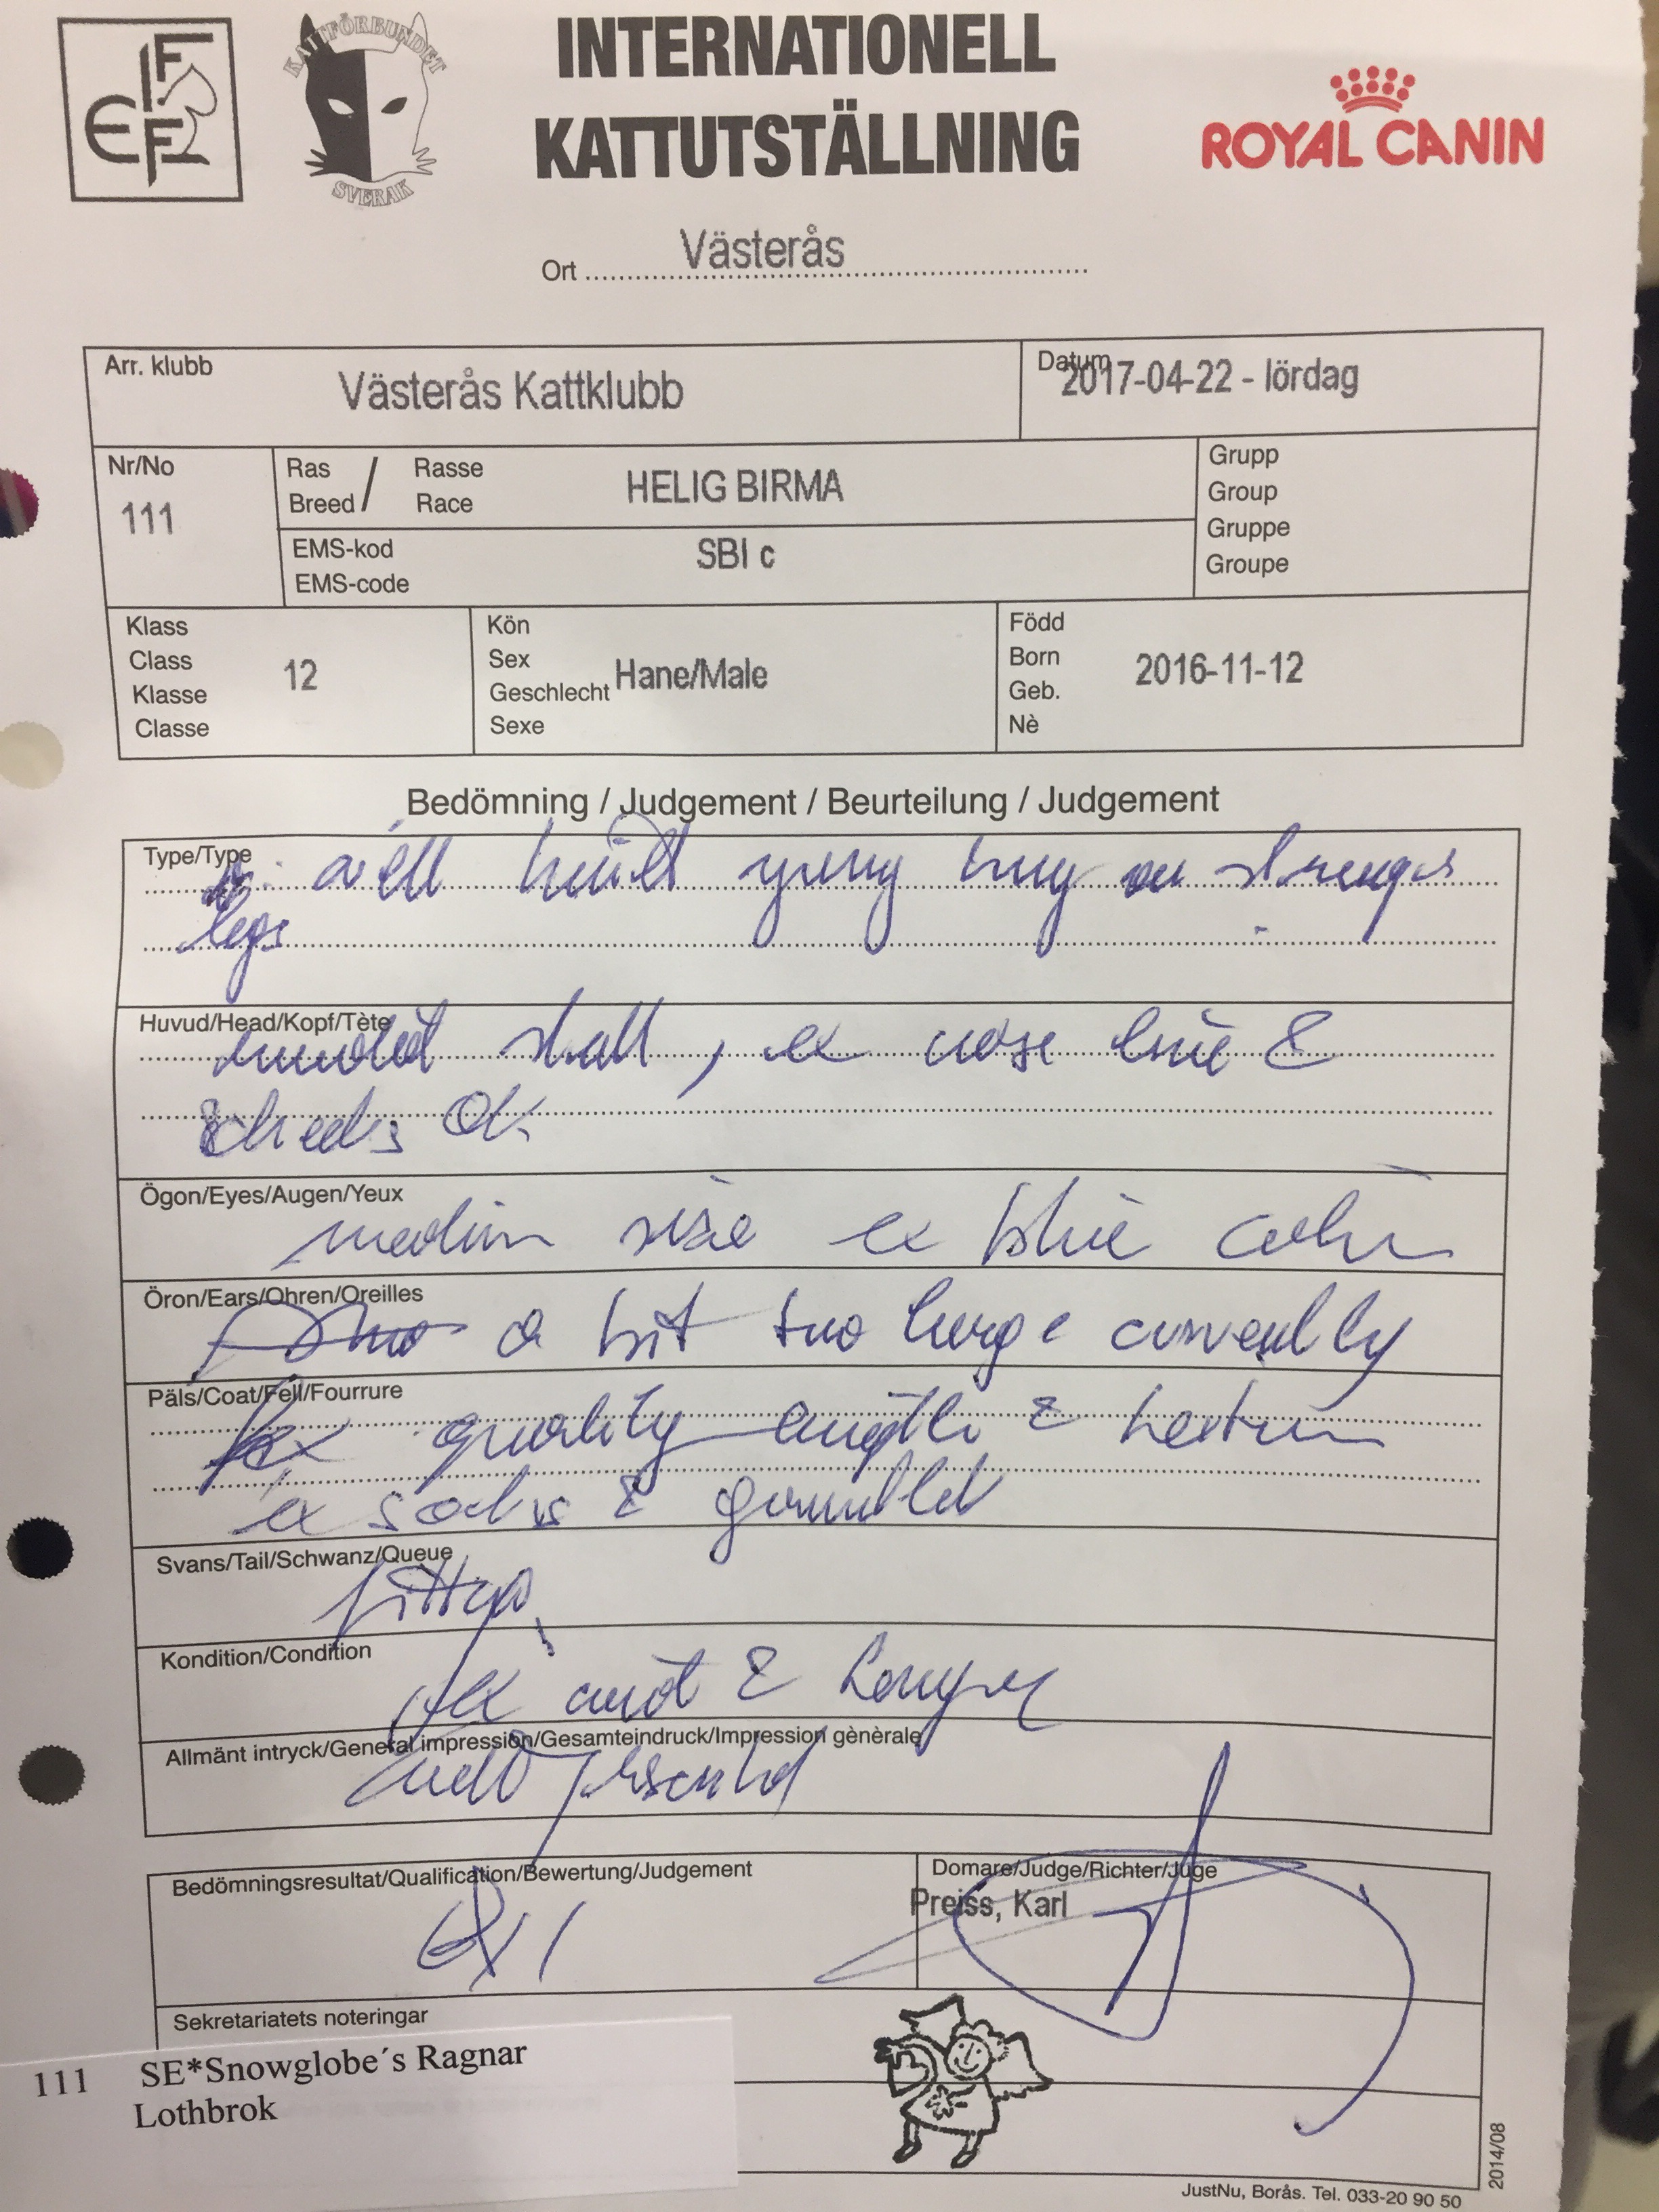 FIFE
KATTFÖRBUNDET
SVERAK
INTERNATIONELL
KATTUTSTÄLLNING
ROYAL CANIN
Ort Västerås
Arr. klubb Västerås Kattklubb
Datum 2017-04-22 - lördag
Nr/No
111
Ras / Rasse
Breed Race
HELIG BIRMA
EMS-kod
EMS-code
SBI c
Grupp
Group
Gruppe
Groupe
Klass
Class
Klasse
Classe
12
Kön
Sex
Geschlecht
Sexe
Hane/Male
Född
Born
Geb.
Nè
2016-11-12
Bedömning / Judgement / Beurteilung / Judgement
Type/Type
well built young boy on
legs
Huvud/Head/Kopf/Tète
skull, ex nose line &
cheeks OK
Ögon/Eyes/Augen/Yeux
medium size ex blue colour
Öron/Ears/Ohren/Oreilles
a bit too large currently
Päls/Coat/Fell/Fourrure
Ex quality length & texture
ex socks &
Svans/Tail/Schwanz/Queue
fitting
Kondition/Condition
ex cond &
Allmänt intryck/General impression/Gesamteindruck/Impression gènèrale
well presented
Bedömningsresultat/Qualification/Bewertung/Judgement
EX 1
Domare/Judge/Richter/Juge
Preiss, Karl
Sekretariatets noteringar
111 SE*Snowglobe´s Ragnar
Lothbrok
2014/08
JustNu, Borås. Tel. 033-20 90 50